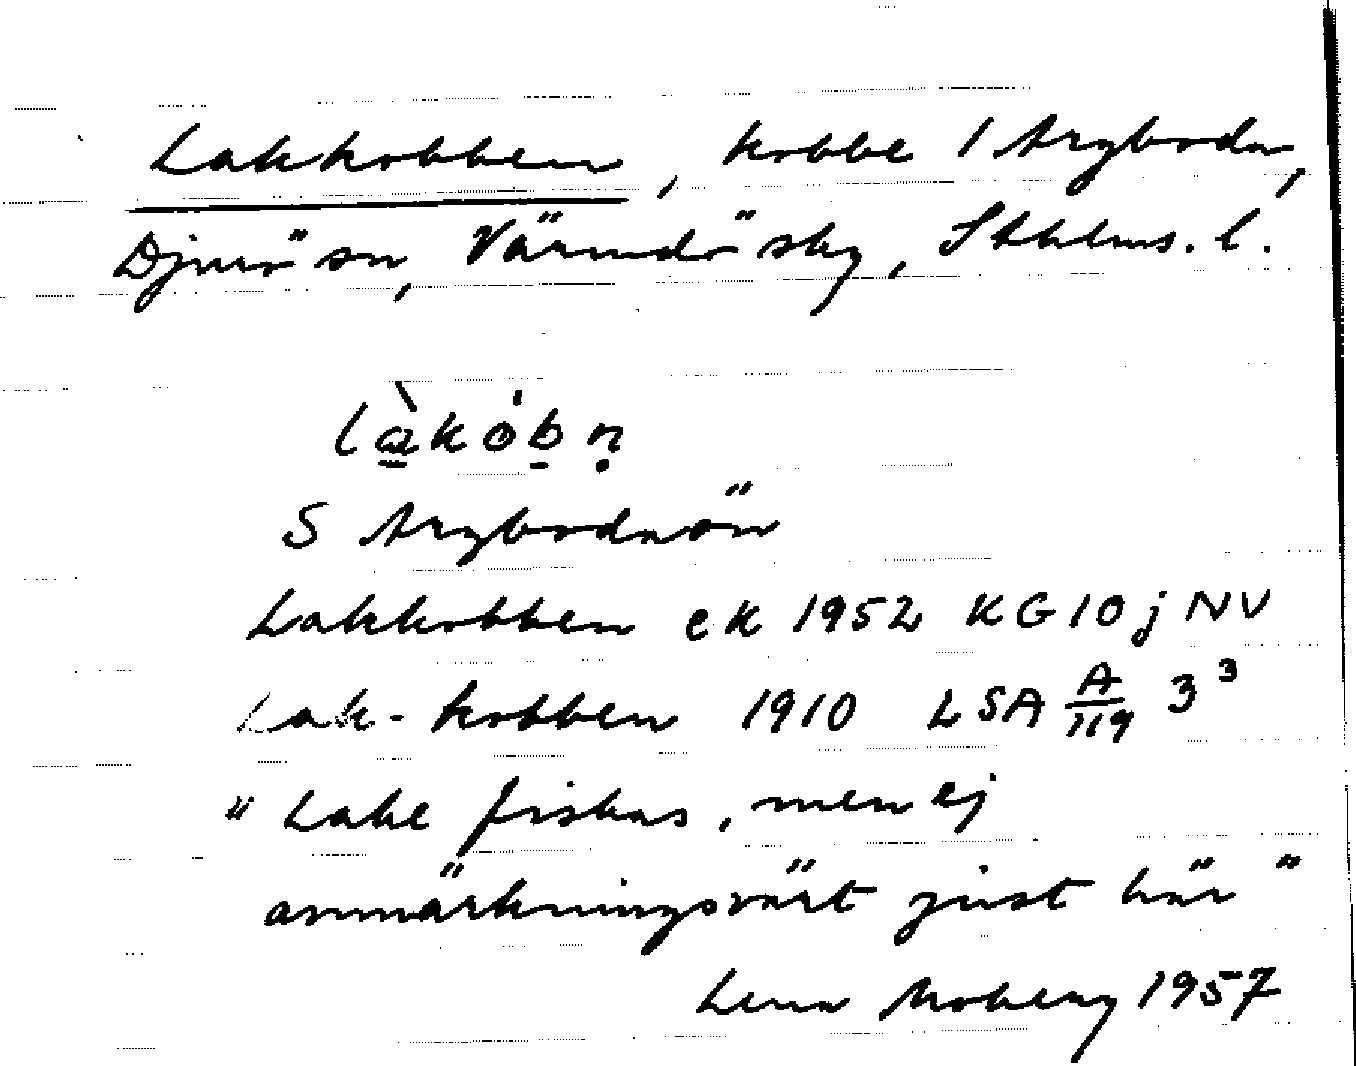 Lakkobben, kobbe / Aryboda,
Djurö sn, Värmdö sky, Stkhlms. l.
làkób̠ṇ
S Arybodaön
Lakkobben ek 1952 KG 10 j NV
Lak-kobben 1910 LSA A/119 3³
"Lake fiskas, men ej
anmärkningsvärt just här"
Lena Moberg 1957